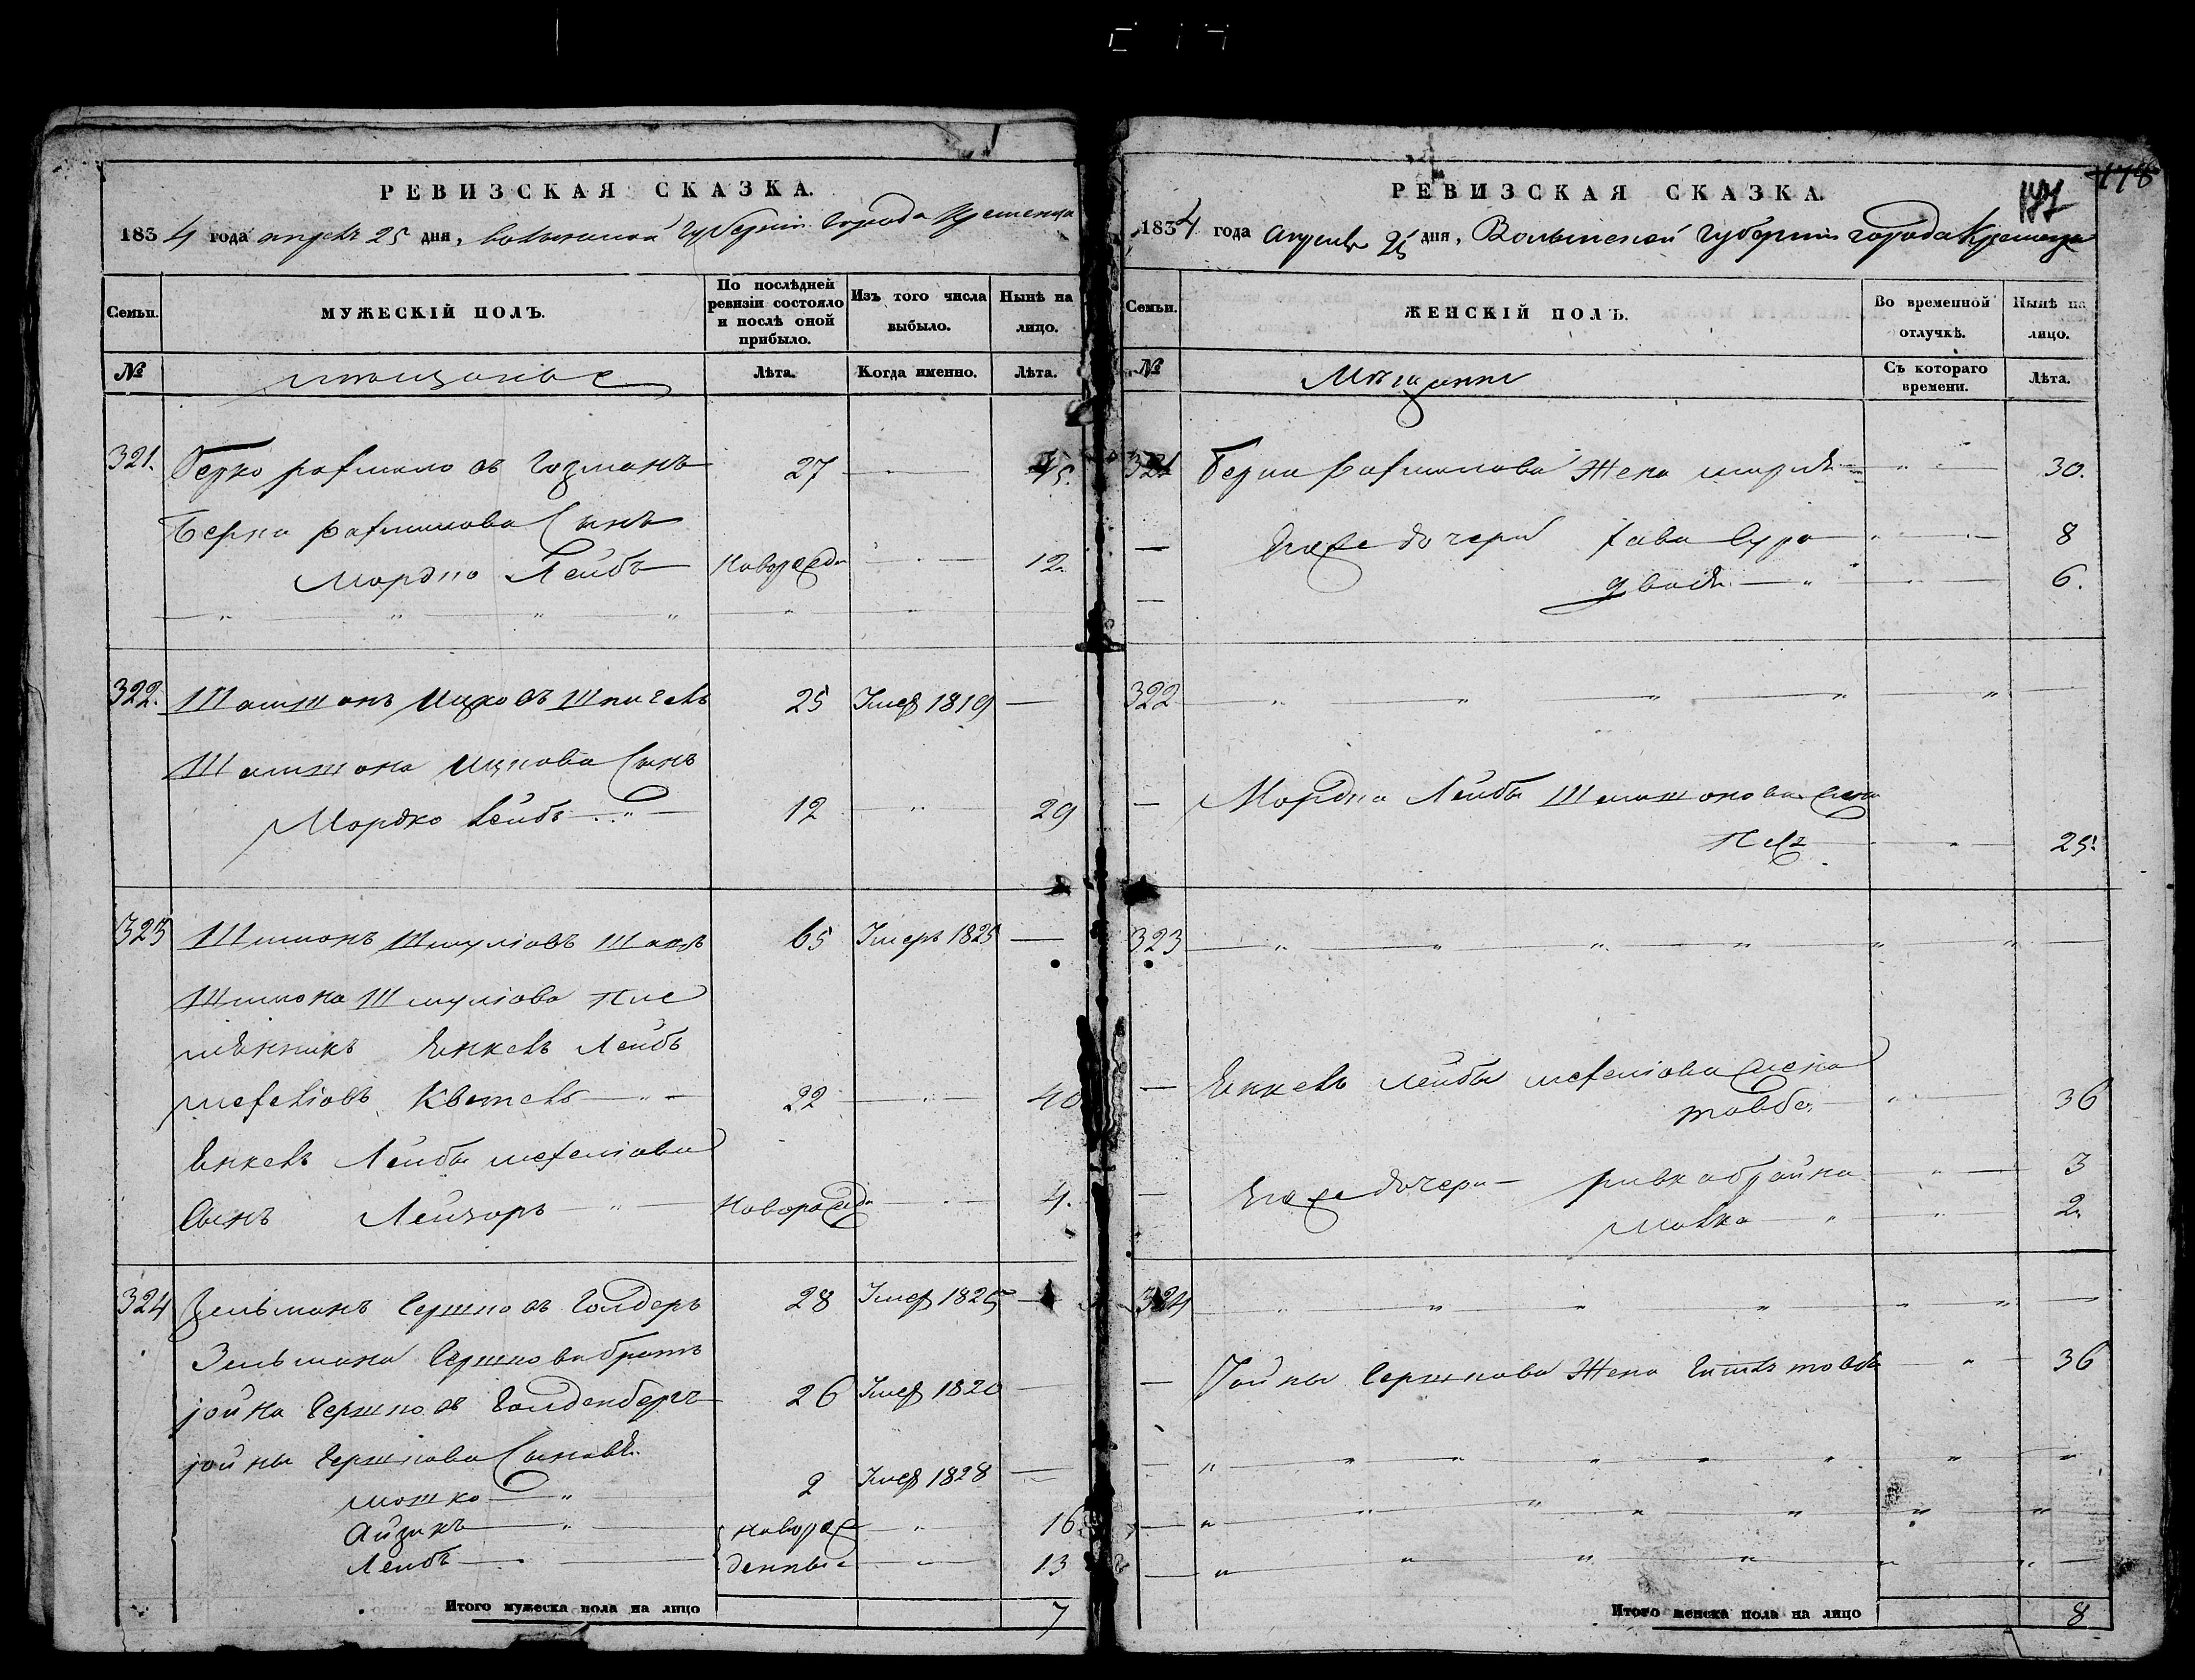 РЕВИЗСКАЯ СКАЗКА.
1834 года апреля 25 дня, Волынской Губернии Города Кременца
Семьи. МУЖЕСКІЙ ПОЛЪ. По послѣдней ревизіи состояло и послѣ оной прибыло. Изъ того числа выбыло. Нынѣ на лицо.
№ мещане Лѣта. Когда именно. Лѣта.
321. Берко Рахмило въ 27 45.
Берка Рахмилова Сынъ
Мордко Лейбъ Новорожд 12.
322. Шамшонъ Ицковъ Шпигель 25 Умер 1819
Шамшона Ицкова Сынъ
Мордко Лейбъ 12 29
323 Шимонъ Шмуліовъ 65 Умеръ 1825
Шимона Шмуліова пле
мѣнникъ Енкель Лейбъ
Мехеліовъ 22 40
Енкель Лейбы Мехеліова
Сынъ Лейзоръ Новорожд 4.
324 Зельманъ Гершковъ 28 Умер 1825
Зельмана Гершкова братъ
Іойна Гершковъ Голденбергъ 26 Умер 1820
Іойны Гершкова Сыновя
Мошко 2 Умер 1828
Айзикъ новорож 16
Лейбъ денные 13
Итого мужеска пола на лицо 7
178
177
РЕВИЗСКАЯ СКАЗКА.
1834 года Апреля 25 дня, Волынской Губернии города Кременца
Семьи. ЖЕНСКІЙ ПОЛЪ. Во временной отлучкѣ. Нынѣ на лицо.
№ Мещанки Съ котораго времени. Лѣта.
321 Берка Рахмилова Жена 30.
Егоже дочери Хава Сура 8
Двося 6.
322
Мордка Лейбы Шамшонова жена
25.
323
Енкель Лейбы Мехеліова жена
Товба 36
Егоже дочери Ривка Брайна 3
Малка 2.
324
Іойны Гершкова Жена Гитля Товба 36
Итого женска пола на лицо 8